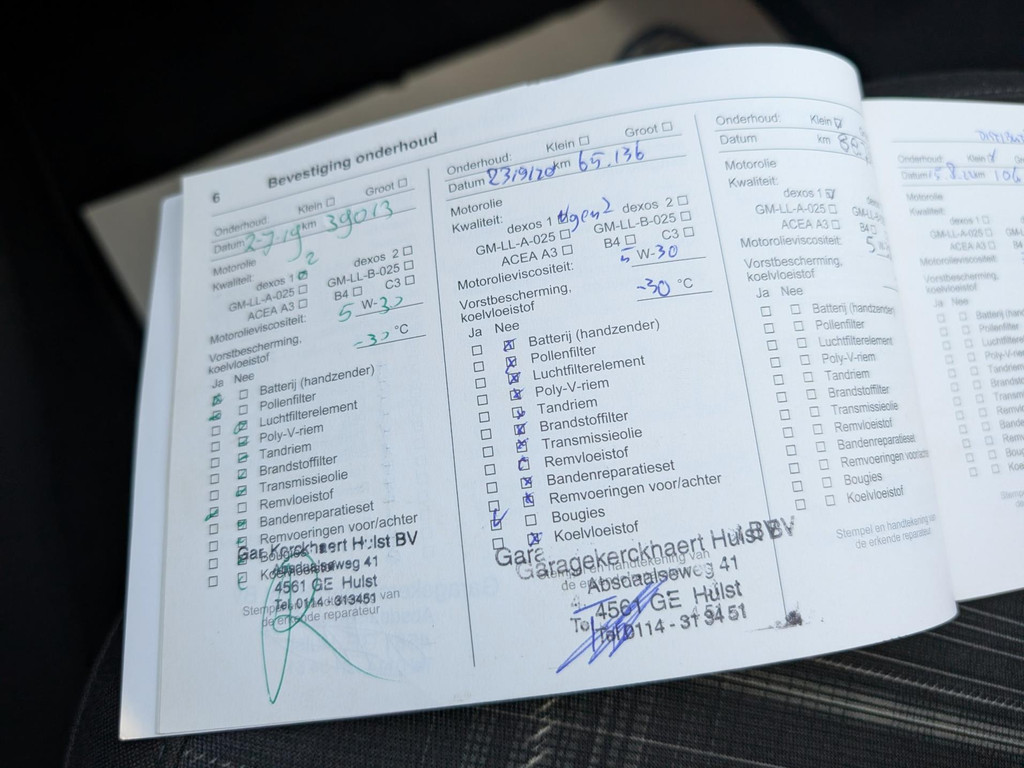 6 Bevestiging onderhoud
Onderhoud: Klein ☐ Groot ☐
Datum 2-7-19 km 39013
Motorolie
Kwaliteit: 2
dexos 1 ☑ dexos 2 ☐
GM-LL-A-025 ☐ GM-LL-B-025 ☐
ACEA A3 ☐ B4 ☐ C3 ☐
Motorolieviscositeit: 5 W-30
Vorstbescherming,
koelvloeistof -30 °C
Ja Nee
Batterij (handzender)
Pollenfilter
Luchtfilterelement
Poly-V-riem
Tandriem
Brandstoffilter
Transmissieolie
Remvloeistof
Bandenreparatieset
Remvoeringen voor/achter
Bougies
Kerckhaert Hulst BV
Absdaalseweg 41
4561 GE Hulst
Tel. 0114-313451
Stempel van
de erkende reparateur
Onderhoud: Klein ☐ Groot ☐
Datum 23/9/20 km 65.136
Motorolie
Kwaliteit:
dexos 1 gen2 dexos 2 ☐
GM-LL-A-025 ☐ GM-LL-B-025 ☐
ACEA A3 ☐ B4 ☐ C3 ☐
Motorolieviscositeit: 5 W-30
Vorstbescherming,
koelvloeistof -30 °C
Ja Nee
Batterij (handzender)
Pollenfilter
Luchtfilterelement
Poly-V-riem
Tandriem
Brandstoffilter
Transmissieolie
Remvloeistof
Bandenreparatieset
Remvoeringen voor/achter
Bougies
Koelvloeistof
Garagekerckhaert Hulst BV
Absdaalseweg 41
4561 GE Hulst
Tel 0114 - 313451
Onderhoud: Klein ☑
Datum km
Motorolie
Kwaliteit:
dexos 1 ☑
GM-LL-A-025 ☐
ACEA A3 ☐ B4
Motorolieviscositeit: 5
Vorstbescherming,
koelvloeistof
Ja Nee
Batterij (handzender
Pollenfilter
Luchtfilterelement
Poly-V-riem
Tandriem
Brandstoffilter
Transmissieolie
Remvloeistof
Bandenreparatieset
Remvoeringen voor/achter
Bougies
Koelvloeistof
Stempel en handtekening van
de erkende reparateur
Onderhoud: Klein
Datum km 106
Motorolie
Kwaliteit:
dexos 1 ☐
GM-LL-A-025 ☐
ACEA A3 ☐
Motorolieviscositeit:
Vorstbescherming,
koelvloeistof
Ja Nee